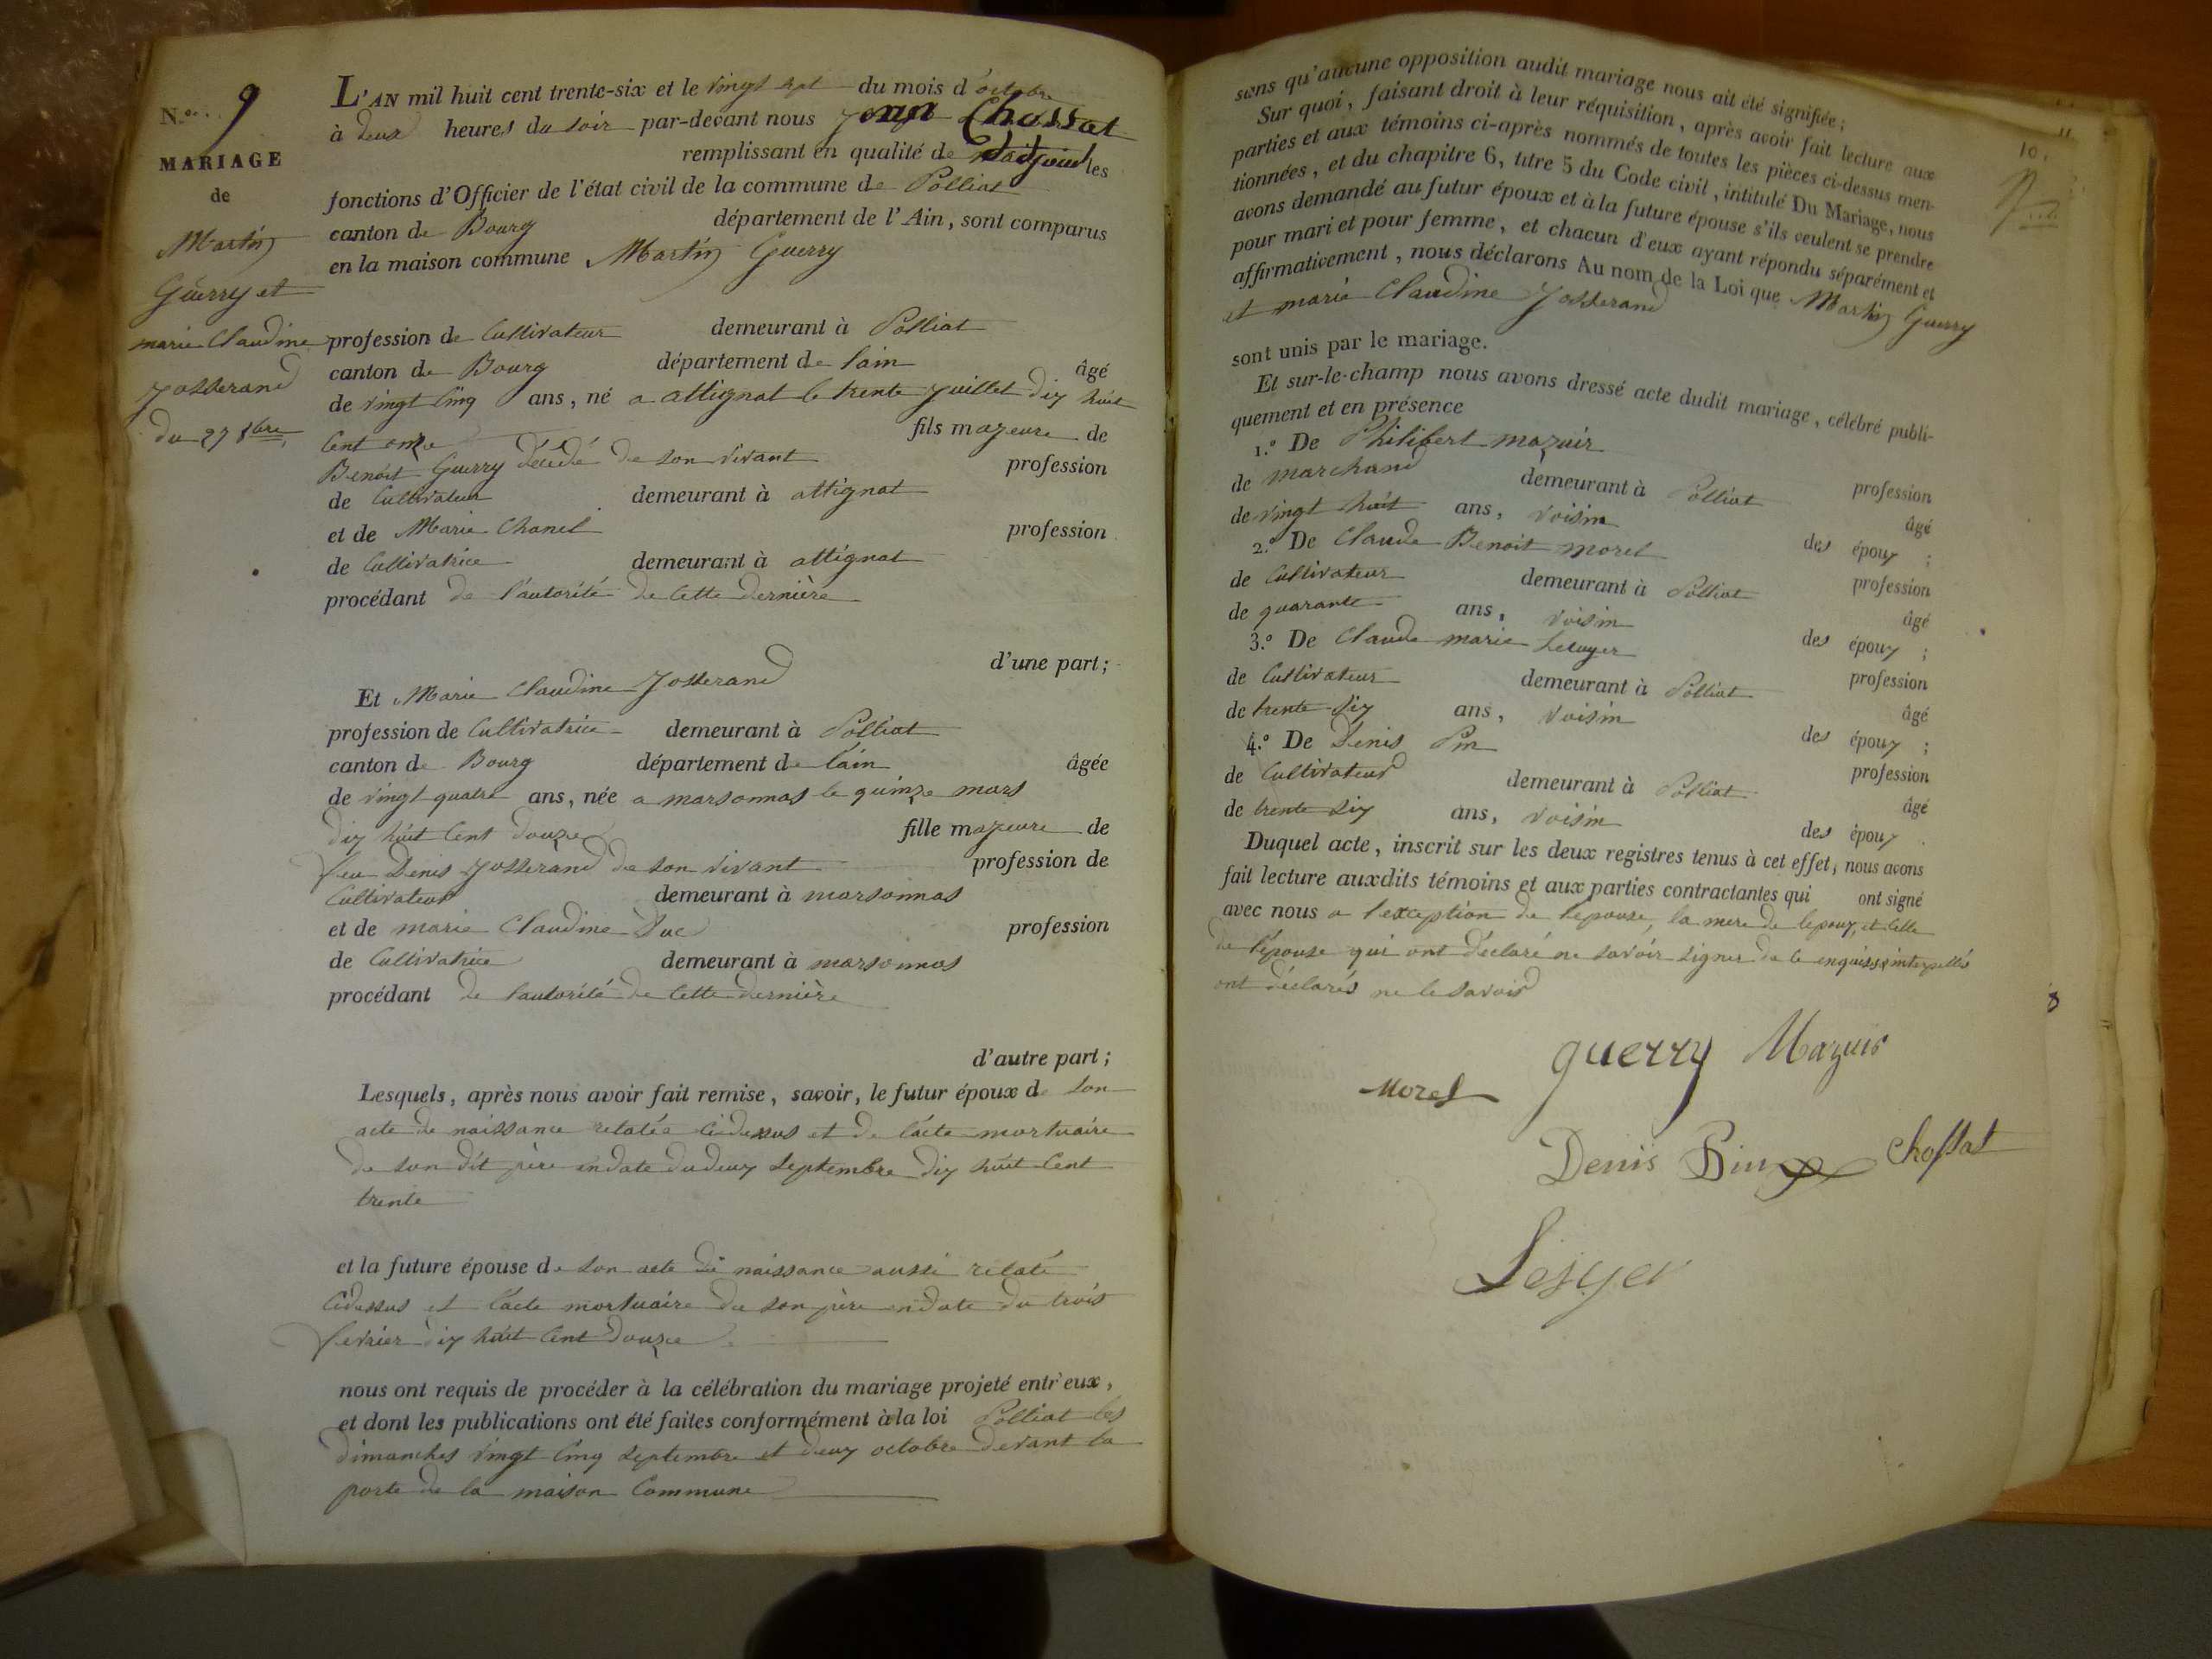 N.° 9
MARIAGE
de
Martin
Guerry et
marie Claudine
Josserand
du 27 8bre
L'AN mil huit cent trente-six et le vingt sept du mois d'octobre
à deux heures du soir par-devant nous Chossat
remplissant en qualité de les
fonctions d'Officier de l'état civil de la commune de Polliat
canton de Bourg département de l'Ain, sont comparus
en la maison commune Martin Guerry
profession de Cultivateur demeurant à Polliat
canton de Bourg département de l'ain âgé
de vingt cinq ans, né a attignat le trente juillet dix huit
cent onze fils majeure de
Benoit Guerry décédé de son vivant profession
de Cultivateur demeurant à attignat
et de Marie Chanel profession
de Cultivatrice demeurant à attignat
procédant de l'autorité de cette dernière
d'une part;
Et Marie Claudine Josserand
profession de Cultivatrice demeurant à Polliat
canton de Bourg département de l'ain âgée
de vingt quatre ans, née a marsonnas le quinze mars
dix huit cent douze fille majeure de
feu Denis Josserand de son vivant profession de
Cultivateur demeurant à marsonnas
et de marie Claudine Duc profession
de Cultivatrice demeurant à marsonnas
procédant de l'autorité de cette dernière
d'autre part;
Lesquels, après nous avoir fait remise, savoir, le futur époux de son
acte de naissance relatée cidessus et de l'acte mortuaire
de son dit père en date du deux septembre dix huit cent
trente
et la future épouse de son acte de naissance aussi relaté
cidessus et l'acte mortuaire de son père en date du trois
fevrier dix huit cent douze
nous ont requis de procéder à la célébration du mariage projeté entr'eux,
et dont les publications ont été faites conformément à la loi Polliat les
dimanches vingt cinq septembre et deux octobre devant la
porte de la maison Commune
10.
sans qu'aucune opposition audit mariage nous ait été signifiée;
Sur quoi, faisant droit à leur réquisition, après avoir fait lecture aux
parties et aux témoins ci-après nommés de toutes les pièces ci-dessus men-
tionnées, et du chapitre 6, titre 5 du Code civil, intitulé Du Mariage, nous
avons demandé au futur époux et à la future épouse s'ils veulent se prendre
pour mari et pour femme, et chacun d'eux ayant répondu séparément et
affirmativement, nous déclarons Au nom de la Loi que Martin Guerry
et marie Claudine Josserand
sont unis par le mariage.
Et sur-le-champ nous avons dressé acte dudit mariage, célébré publi-
quement et en présence
1.° De Philibert mazuir profession
de marchand demeurant à Polliat âgé
de vingt huit ans, voisin des époux ;
2.° De Claude Benoit morel profession
de Cultivateur demeurant à Polliat âgé
de quarante ans, voisin des époux ;
3.° De Claude marie profession
de Cultivateur demeurant à Polliat âgé
de trente six ans, voisin des époux ;
4.° De Denis Pin profession
de Cultivateur demeurant à Polliat âgé
de trente six ans, voisin des époux
Duquel acte, inscrit sur les deux registres tenus à cet effet, nous avons
fait lecture auxdits témoins et aux parties contractantes qui ont signé
avec nous a l'exception de l'epouse, la mere de l'epoux, et celle
de l'épouse qui ont déclaré ne savoir signer de ce enquis interpellés
ont déclarés ne le savoir
guerry Mazuir
Morel
Denis Pin Chossat